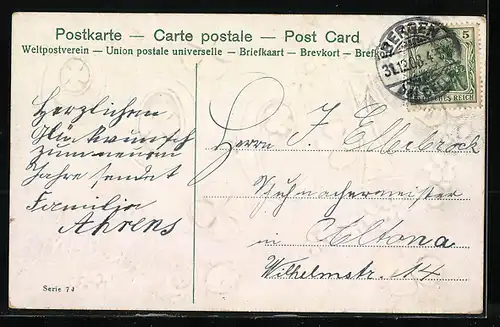 Postkarte — Carte postale — Post Card
Weltpostverein — Union postale universelle — Briefkaart — Brevkort — Brefk
BERGEN
31.12.
5
REICH
Herzlichen
Glückwunsch
zum neuen
Jahre sendet
Familie
Ahrens
Herrn J. Ellerbrock
Schuhmachermeister
in Altona
Wilhelmstr. 14
Serie 74